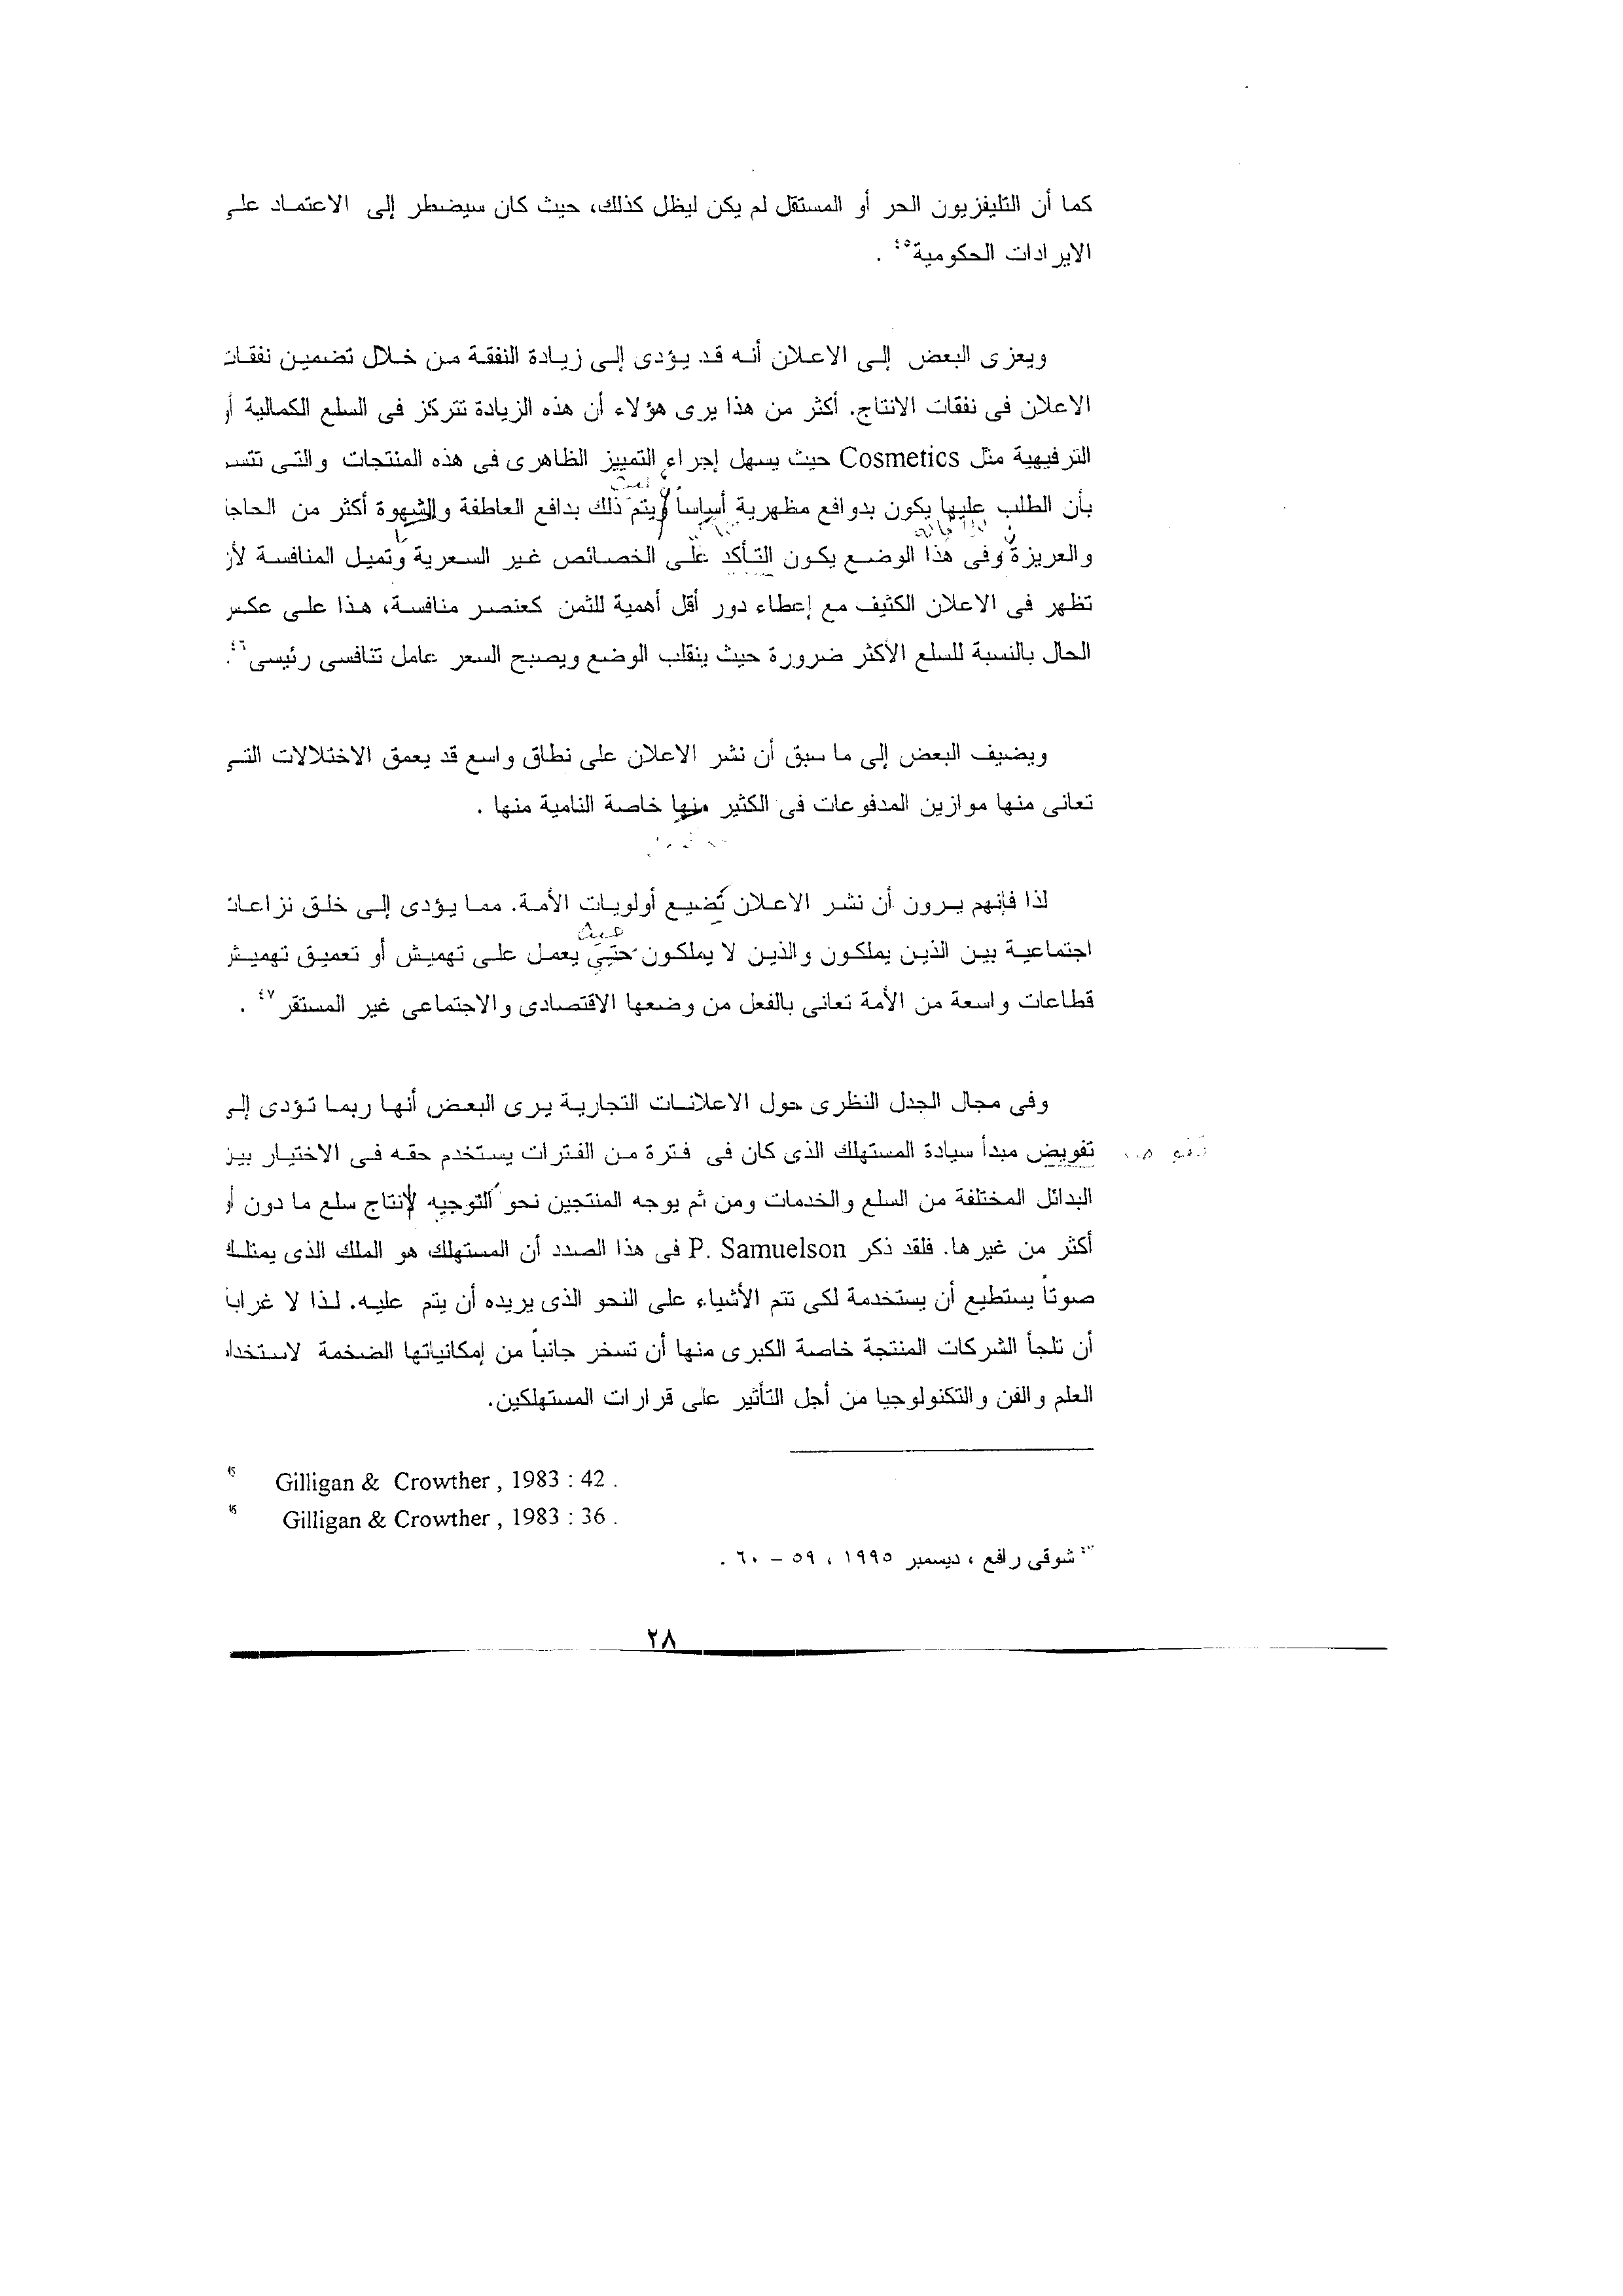 كما أن التليفزيون الحر أو المستقل لم يكن ليظل كذلك، حيث كان سيضطر إلى الاعتماد على
الايرادات الحكومية٤٥ .
ويعزى البعض إلى الاعلان أنه قد يؤدى إلى زيادة النفقة من خلال تضمين نفقات
الاعلان فى نفقات الانتاج. أكثر من هذا يرى هؤلاء أن هذه الزيادة تتركز فى السلع الكمالية أو
الترفيهية مثل Cosmetics حيث يسهل إجراء التمييز الظاهرى فى هذه المنتجات والتى تتسم
بأن الطلب عليها يكون بدوافع مظهرية أساساً ويتم ذلك بدافع العاطفة والشهوة أكثر من الحاجة
والعريزة وفى هذا الوضع يكون التأكد على الخصائص غير السعرية وتميل المنافسة لأن
تظهر فى الاعلان الكثيف مع إعطاء دور أقل أهمية للثمن كعنصر منافسة، هذا على عكس
الحال بالنسبة للسلع الأكثر ضرورة حيث ينقلب الوضع ويصبح السعر عامل تنافسى رئيسى٤٦.
ويضيف البعض إلى ما سبق أن نشر الاعلان على نطاق واسع قد يعمق الاختلالات التى
تعانى منها موازين المدفوعات فى الكثير منها خاصة النامية منها .
لذا فإنهم يرون أن نشر الاعلان تُضيع أولويات الأمة. مما يؤدى إلى خلق نزاعات
حيث
اجتماعية بين الذين يملكون والذين لا يملكون حتى يعمل على تهميش أو تعميق تهميش
قطاعات واسعة من الأمة تعانى بالفعل من وضعها الاقتصادى والاجتماعى غير المستقر٤٧ .
وفى مجال الجدل النظرى حول الاعلانات التجارية يرى البعض أنها ربما تؤدى إلى
تفويض مبدأ سيادة المستهلك الذى كان فى فترة من الفترات يستخدم حقه فى الاختيار بين
البدائل المختلفة من السلع والخدمات ومن ثم يوجه المنتجين نحو التوجيه لإنتاج سلع ما دون أو
أكثر من غيرها. فلقد ذكر P. Samuelson فى هذا الصدد أن المستهلك هو الملك الذى يمتلك
صوتاً يستطيع أن يستخدمة لكى تتم الأشياء على النحو الذى يريده أن يتم عليه. لذا لا غرابة
أن تلجأ الشركات المنتجة خاصة الكبرى منها أن تسخر جانباً من إمكانياتها الضخمة لاستخدام
العلم والفن والتكنولوجيا من أجل التأثير على قرارات المستهلكين.
45 Gilligan & Crowther , 1983 : 42 .
Gilligan & Crowther , 1983 : 36 .
٤٧ شوقى رافع ، ديسمبر ١٩٩٥ ، ٥٩ – ٦٠ .
٢٨